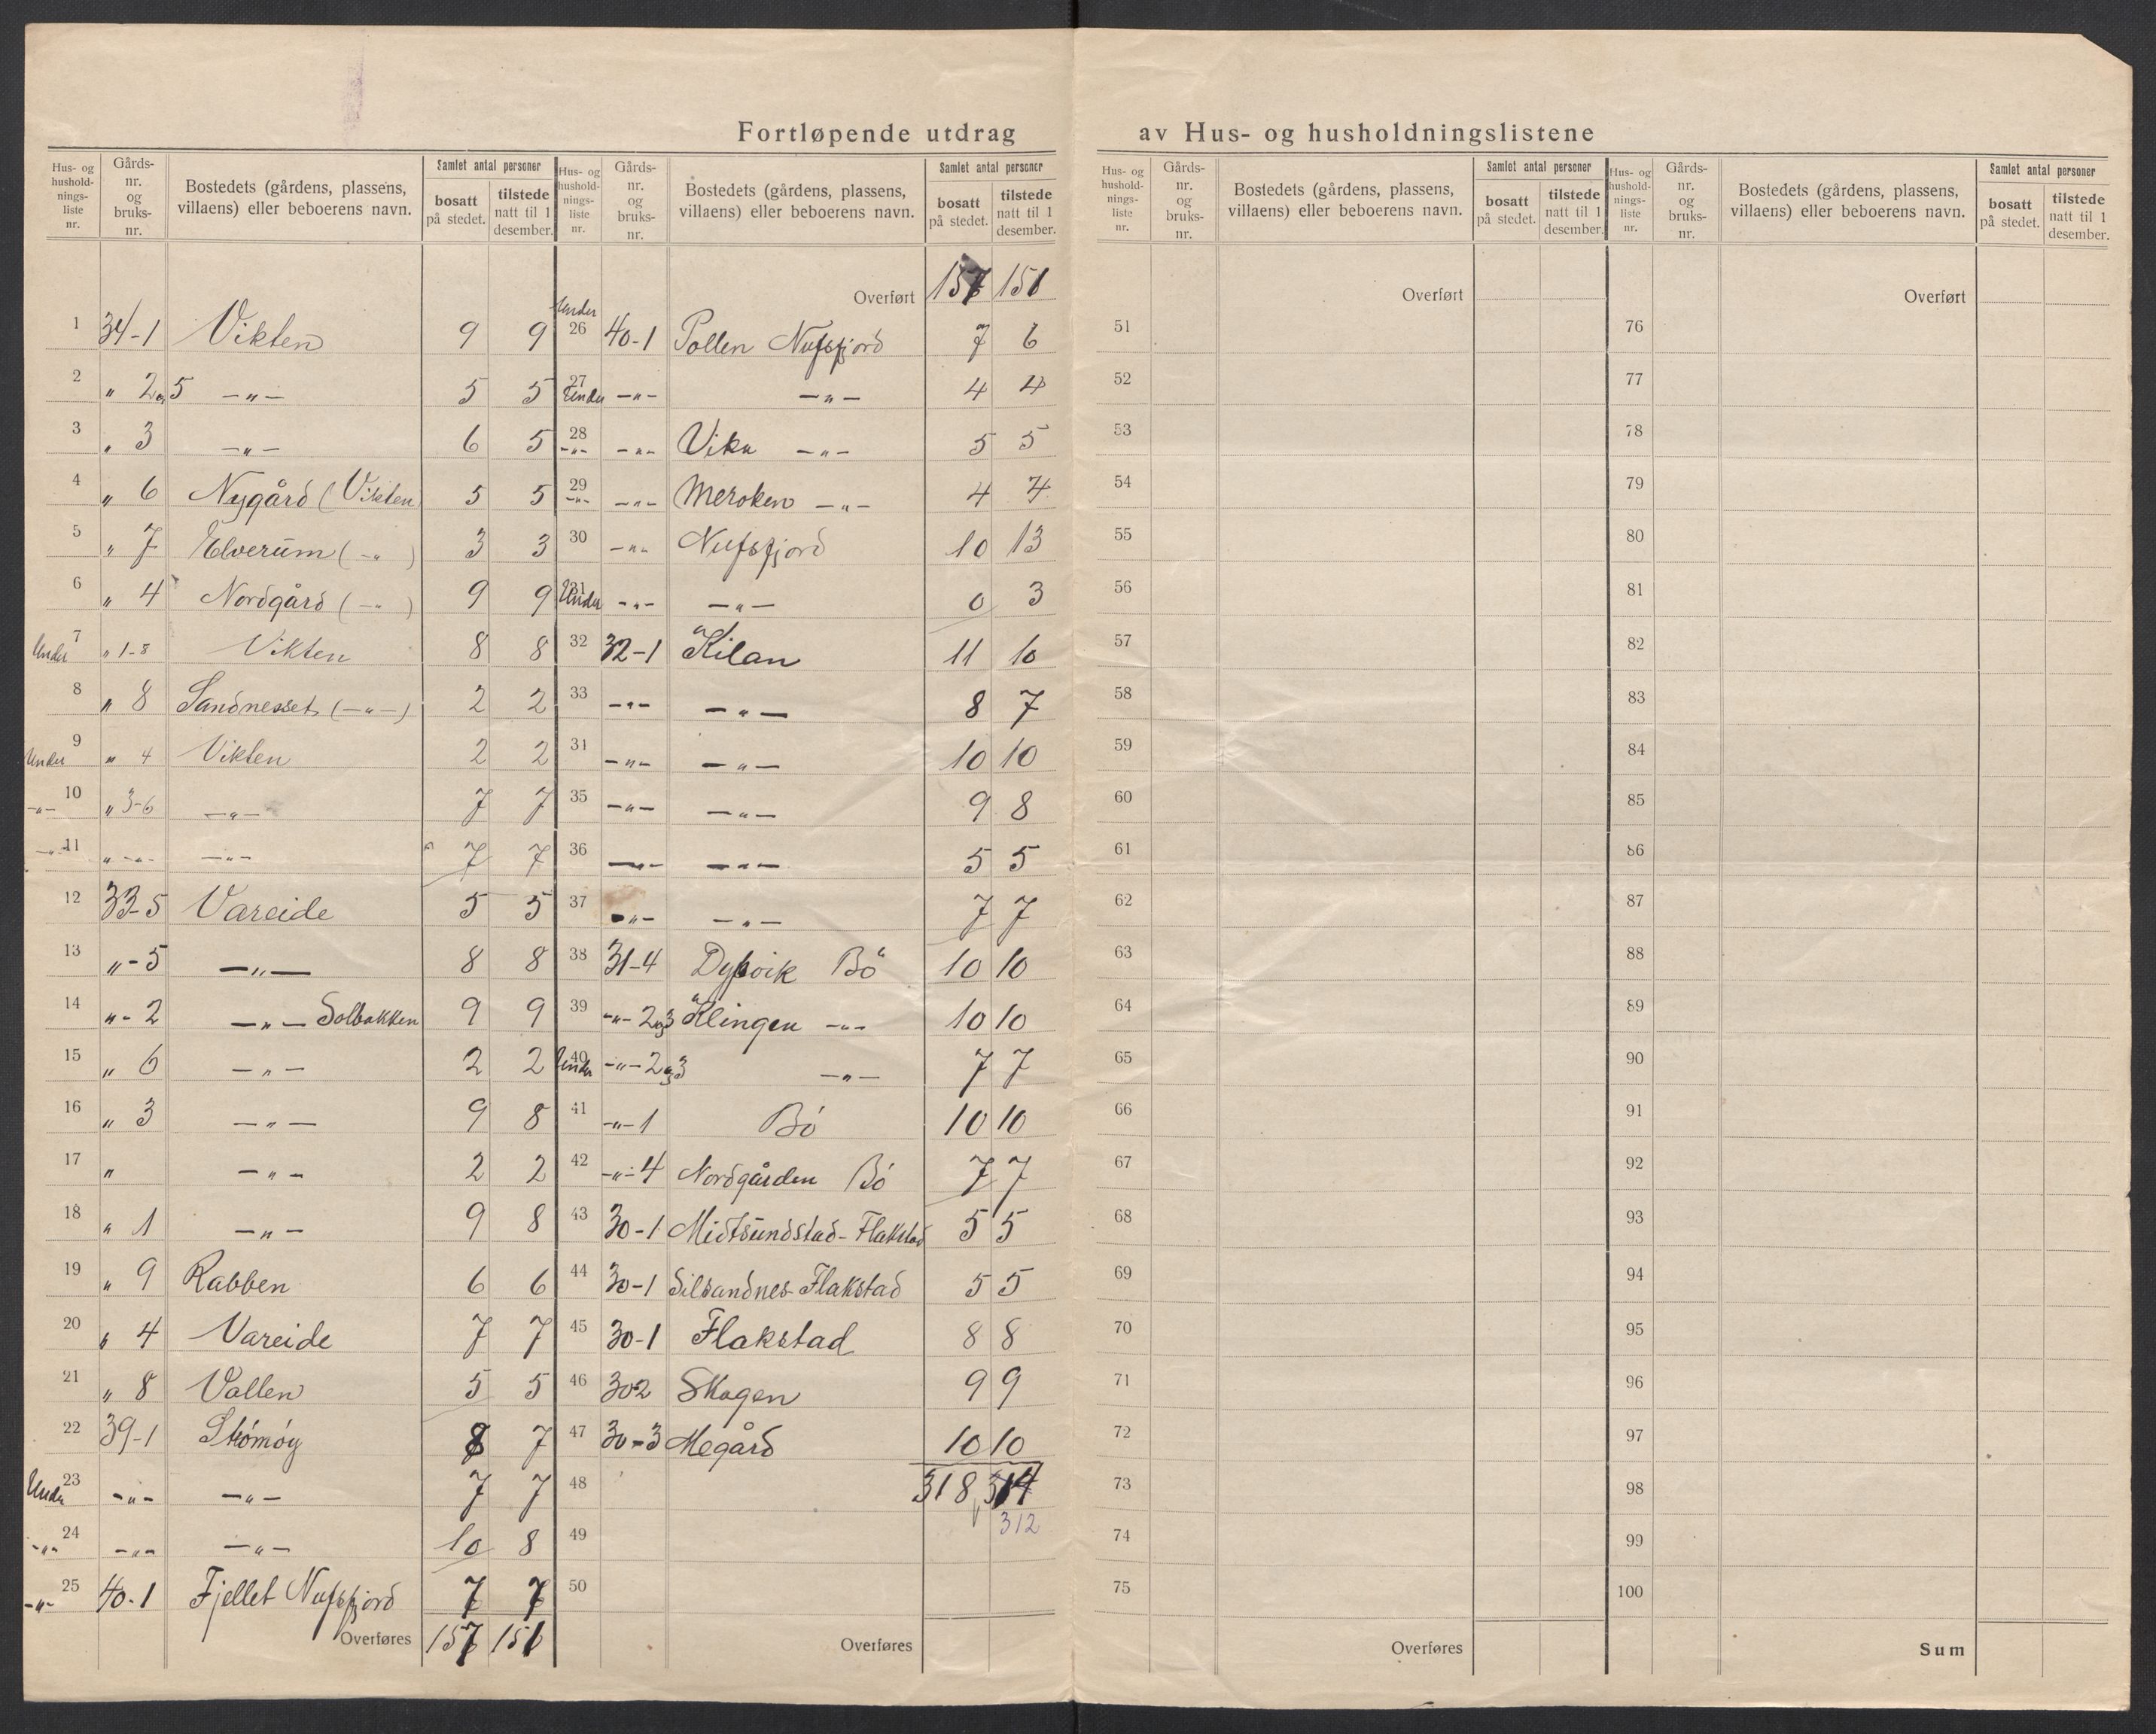 Fortløpende utdrag av Hus- og husholdningslistene
Hus- og hushold- nings- liste nr. | Gårds- nr. og bruks- nr. | Bostedets (gårdens, plassens, villaens) eller beboerens navn. | Samlet antal personer | bosatt på stedet. | tilstede natt til 1 desember.
1 34-1 Vikten 9 9
2 " 2 og 5 —"— 5 5
3 " 3 —"— 6 5
4 " 6 Nygård (Vikten 5 5
5 " 7 Elverum (—") 3 3
6 " 4 Nordgård (—") 9 9
Under 7 " 1-8 Vikten 8 8
8 " 8 Sandnesset (—"—) 2 2
Under 9 " 4 Vikten 2 2
—"— 10 " 3-6 —"— 7 7
—"— 11 " —"— —"— 7 7
12 33-5 Vareide 5 5
13 "-5 —"— 8 8
14 "-2 —"— Solbakken 9 9
15 " 6 —"— 2 2
16 " 3 —"— 9 8
17 " —"— 2 2
18 " 1 —"— 9 8
19 " 9 Rabben 6 6
20 " 4 Vareide 7 7
21 " 8 Vollen 5 5
22 39-1 Strömöy 8 7
Under 23 —"— —"— 7 7
—"— 24 —"— —"— 10 8
—"— 25 40-1 Fjellet Nufsfjord 7 7
Overføres 157 151
Hus- og hushold- nings- liste nr. | Gårds- nr. og bruks- nr. | Bostedets (gårdens, plassens, villaens) eller beboerens navn. | Samlet antal personer | bosatt på stedet. | tilstede natt til 1 desember.
Overført 157 151
Under 26 40-1 Pollen Nufsfjord 7 6
27 Under —"— —"— 4 4
28 —"— —"— Vika —"— 5 5
29 —"— —"— Meroken —"— 4 4
30 —"— Nufsfjord 10 13
31 Under —"— —"— 0 3
32 32-1 Kilan 11 10
33 —"— —"— 8 7
31 —"— —"— 10 10
35 —"— —"— 9 8
36 —"— —"— 5 5
37 —"— —"— 7 7
38 31-4 Dypvik Bö 10 10
39 —"— 2 og 3 Klingen —"— 10 10
40 Under —"— 2 og 3 —"— 7 7
41 —"— 1 Bö 10 10
42 —"— 4 Nordgården Bö 7 7
43 30-1 Midtsundstad-Flakstad 5 5
44 30-1 Silsandnes-Flakstad 5 5
45 30-1 Flakstad 8 8
46 30-2 Skagen 9 9
47 30-3 Megård 10 10
48 318 314
312
49
50
Overføres
Hus- og hushold- nings- liste nr. | Gårds- nr. og bruks- nr. | Bostedets (gårdens, plassens, villaens) eller beboerens navn. | Samlet antal personer | bosatt på stedet. | tilstede natt til 1 desember.
Overført
51
52
53
54
55
56
57
58
59
60
61
62
63
64
65
66
67
68
69
70
71
72
73
74
75
Overføres
Hus- og hushold- nings- liste nr. | Gårds- nr. og bruks- nr. | Bostedets (gårdens, plassens, villaens) eller beboerens navn. | Samlet antal personer | bosatt på stedet. | tilstede natt til 1 desember.
Overført
76
77
78
79
80
81
82
83
84
85
86
87
88
89
90
91
92
93
94
95
96
97
98
99
100
Sum